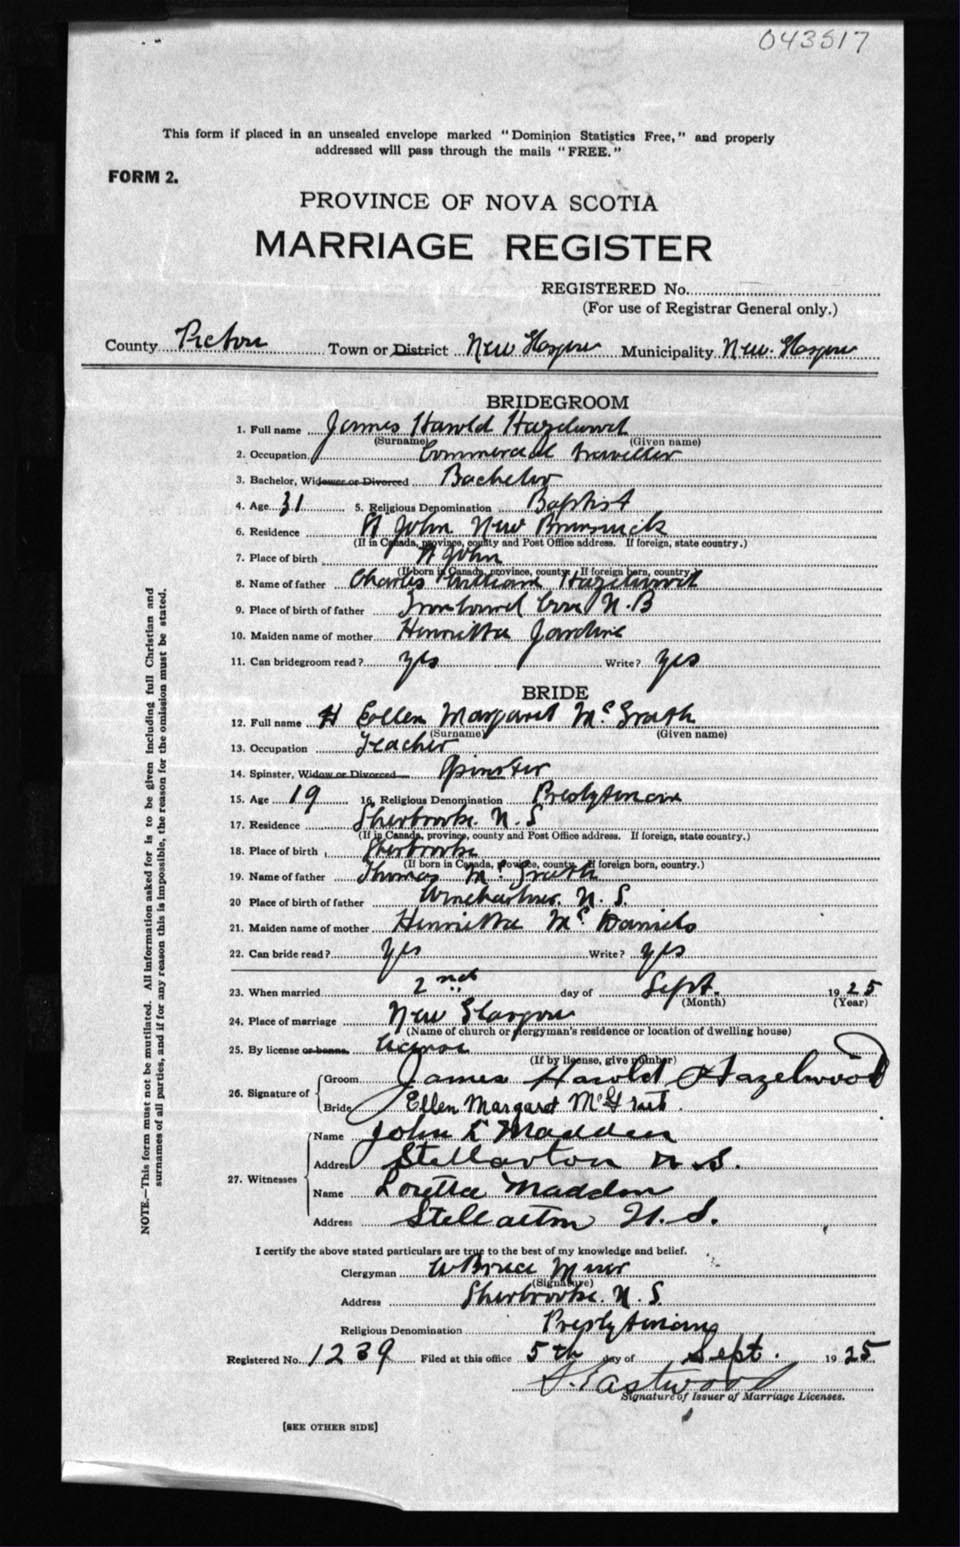 043517
This form if placed in an unsealed envelope marked "Dominion Statistics Free," and properly
addressed will pass through the mails "FREE."
FORM 2.
PROVINCE OF NOVA SCOTIA
MARRIAGE REGISTER
REGISTERED No.
(For use of Registrar General only.)
County Pictou Town or District New Glasgow Municipality New Glasgow
BRIDEGROOM
1. Full name James Harold Hazelwood
(Surname) (Given name)
2. Occupation Commercial Traveller
3. Bachelor, Widower or Divorced Bachelor
4. Age 31 5. Religious Denomination Baptist
6. Residence St John New Brunswick
(If in Canada, province, county and Post Office address. If foreign, state country.)
7. Place of birth St John
(If born in Canada, province, county. If foreign born, country.)
8. Name of father Charles William Hazelwood
9. Place of birth of father N.B
10. Maiden name of mother Henrietta Jardine
11. Can bridegroom read? yes Write? yes
BRIDE
12. Full name Ellen Margaret McGrath
(Surname) (Given name)
13. Occupation Teacher
14. Spinster, Widow or Divorced Spinster
15. Age 19 16. Religious Denomination Presbyterian
17. Residence Sherbrooke. N.S
(If in Canada, province, county and Post Office address. If foreign, state country.)
18. Place of birth Sherbrooke
(If born in Canada, province, county. If foreign born, country.)
19. Name of father Thomas McGrath
20 Place of birth of father Wine Harbour. N.S.
21. Maiden name of mother Henrietta McDaniels
22. Can bride read? yes Write? yes
23. When married 2nd day of Sept. 1925
(Month) (Year)
24. Place of marriage New Glasgow
(Name of church or clergyman's residence or location of dwelling house)
25. By license or banns. License
(If by license, give number)
26. Signature of Groom James Harold Hazelwood
Bride Ellen Margaret
27. Witnesses Name John L Madden
Address Stellarton N.S.
Name Loretta Madden
Address Stellarton N.S.
I certify the above stated particulars are true to the best of my knowledge and belief.
Clergyman W Bruce Muir
(Signature)
Address Sherbrooke. N.S.
Religious Denomination Presbyterian
Registered No. 1239 Filed at this office 5th day of Sept. 1925
Eastwood
Signature of Issuer of Marriage Licenses.
[SEE OTHER SIDE]
NOTE.—This form must not be mutilated. All information asked for is to be given including full Christian and
surnames of all parties, and if for any reason this is impossible, the reason for the omission must be stated.